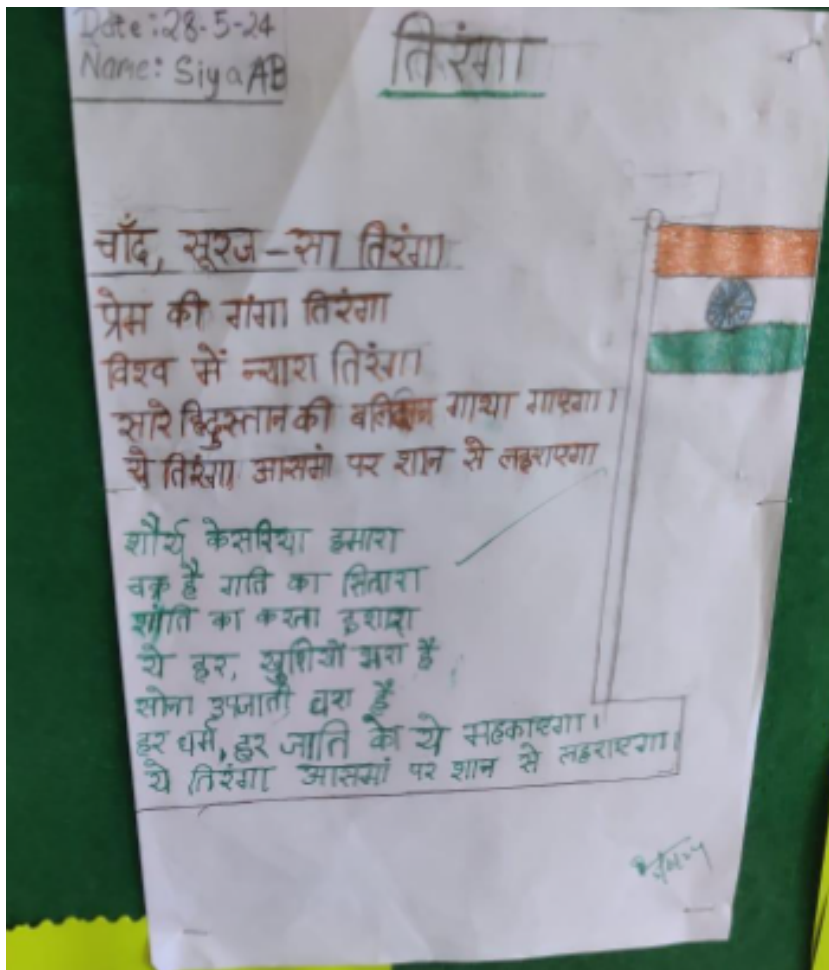 Date: 28-5-24
Name: Siya AB
तिरंगा
चाँद, सूरज-सा तिरंगा
प्रेम की गंगा तिरंगा
विश्व में न्यारा तिरंगा
सारे हिंदुस्तान की बलिदान गाथा गाएगा।
ये तिरंगा आसमां पर शान से लहराएगा
शौर्य केसरिया हमारा
चक्र है गति का सितारा
शांति का करता इशारा
ये हर, खुशियों भरा है
सोना उपजाती धरा है
हर धर्म, हर जाति को ये महकाएगा।
ये तिरंगा आसमां पर शान से लहराएगा।